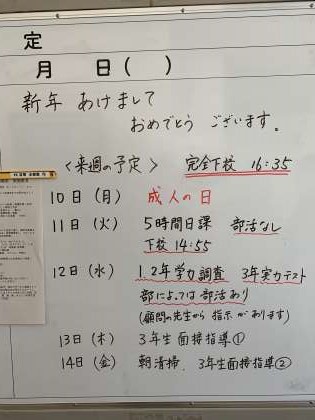 定
月 日( )
新年 あけまして
おめでとう ございます。
<来週の予定> 完全下校 16:35
10日(月) 成人の日
11日(火) 5時間日課 部活なし
下校 14:55
12日(水) 1.2年学力調査 3年実力テスト
部によっては部活あり
(顧問の先生から 指示があります)
13日(木) 3年生面接指導①
14日(金) 朝清掃. 3年生面接指導②